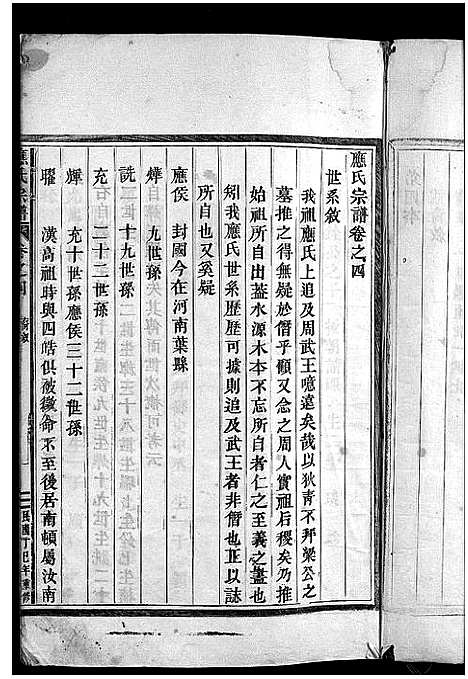 應氏宗譜卷之四
世系敘
我祖應氏上追及周武王噫遠矣哉以狄青不拜梁公之
墓推之得無疑於僭乎顧又念之周人實祖后稷矣乃推
始祖所自出蓋水源木本不忘所自者仁之至義之盡也
矧我應氏世系歷歷可據則追及武王者非僭也正以誌
所自又奚疑
應侯 封國今在河南葉縣
燁 九世孫
詵 十九世孫
充 二十二世孫
燁 充十世孫應侯三十二世孫
曜 漢高祖時與四皓俱被徵命不至後居南頓屬汝南
應氏宗譜 卷之四
民國丁巳年重修